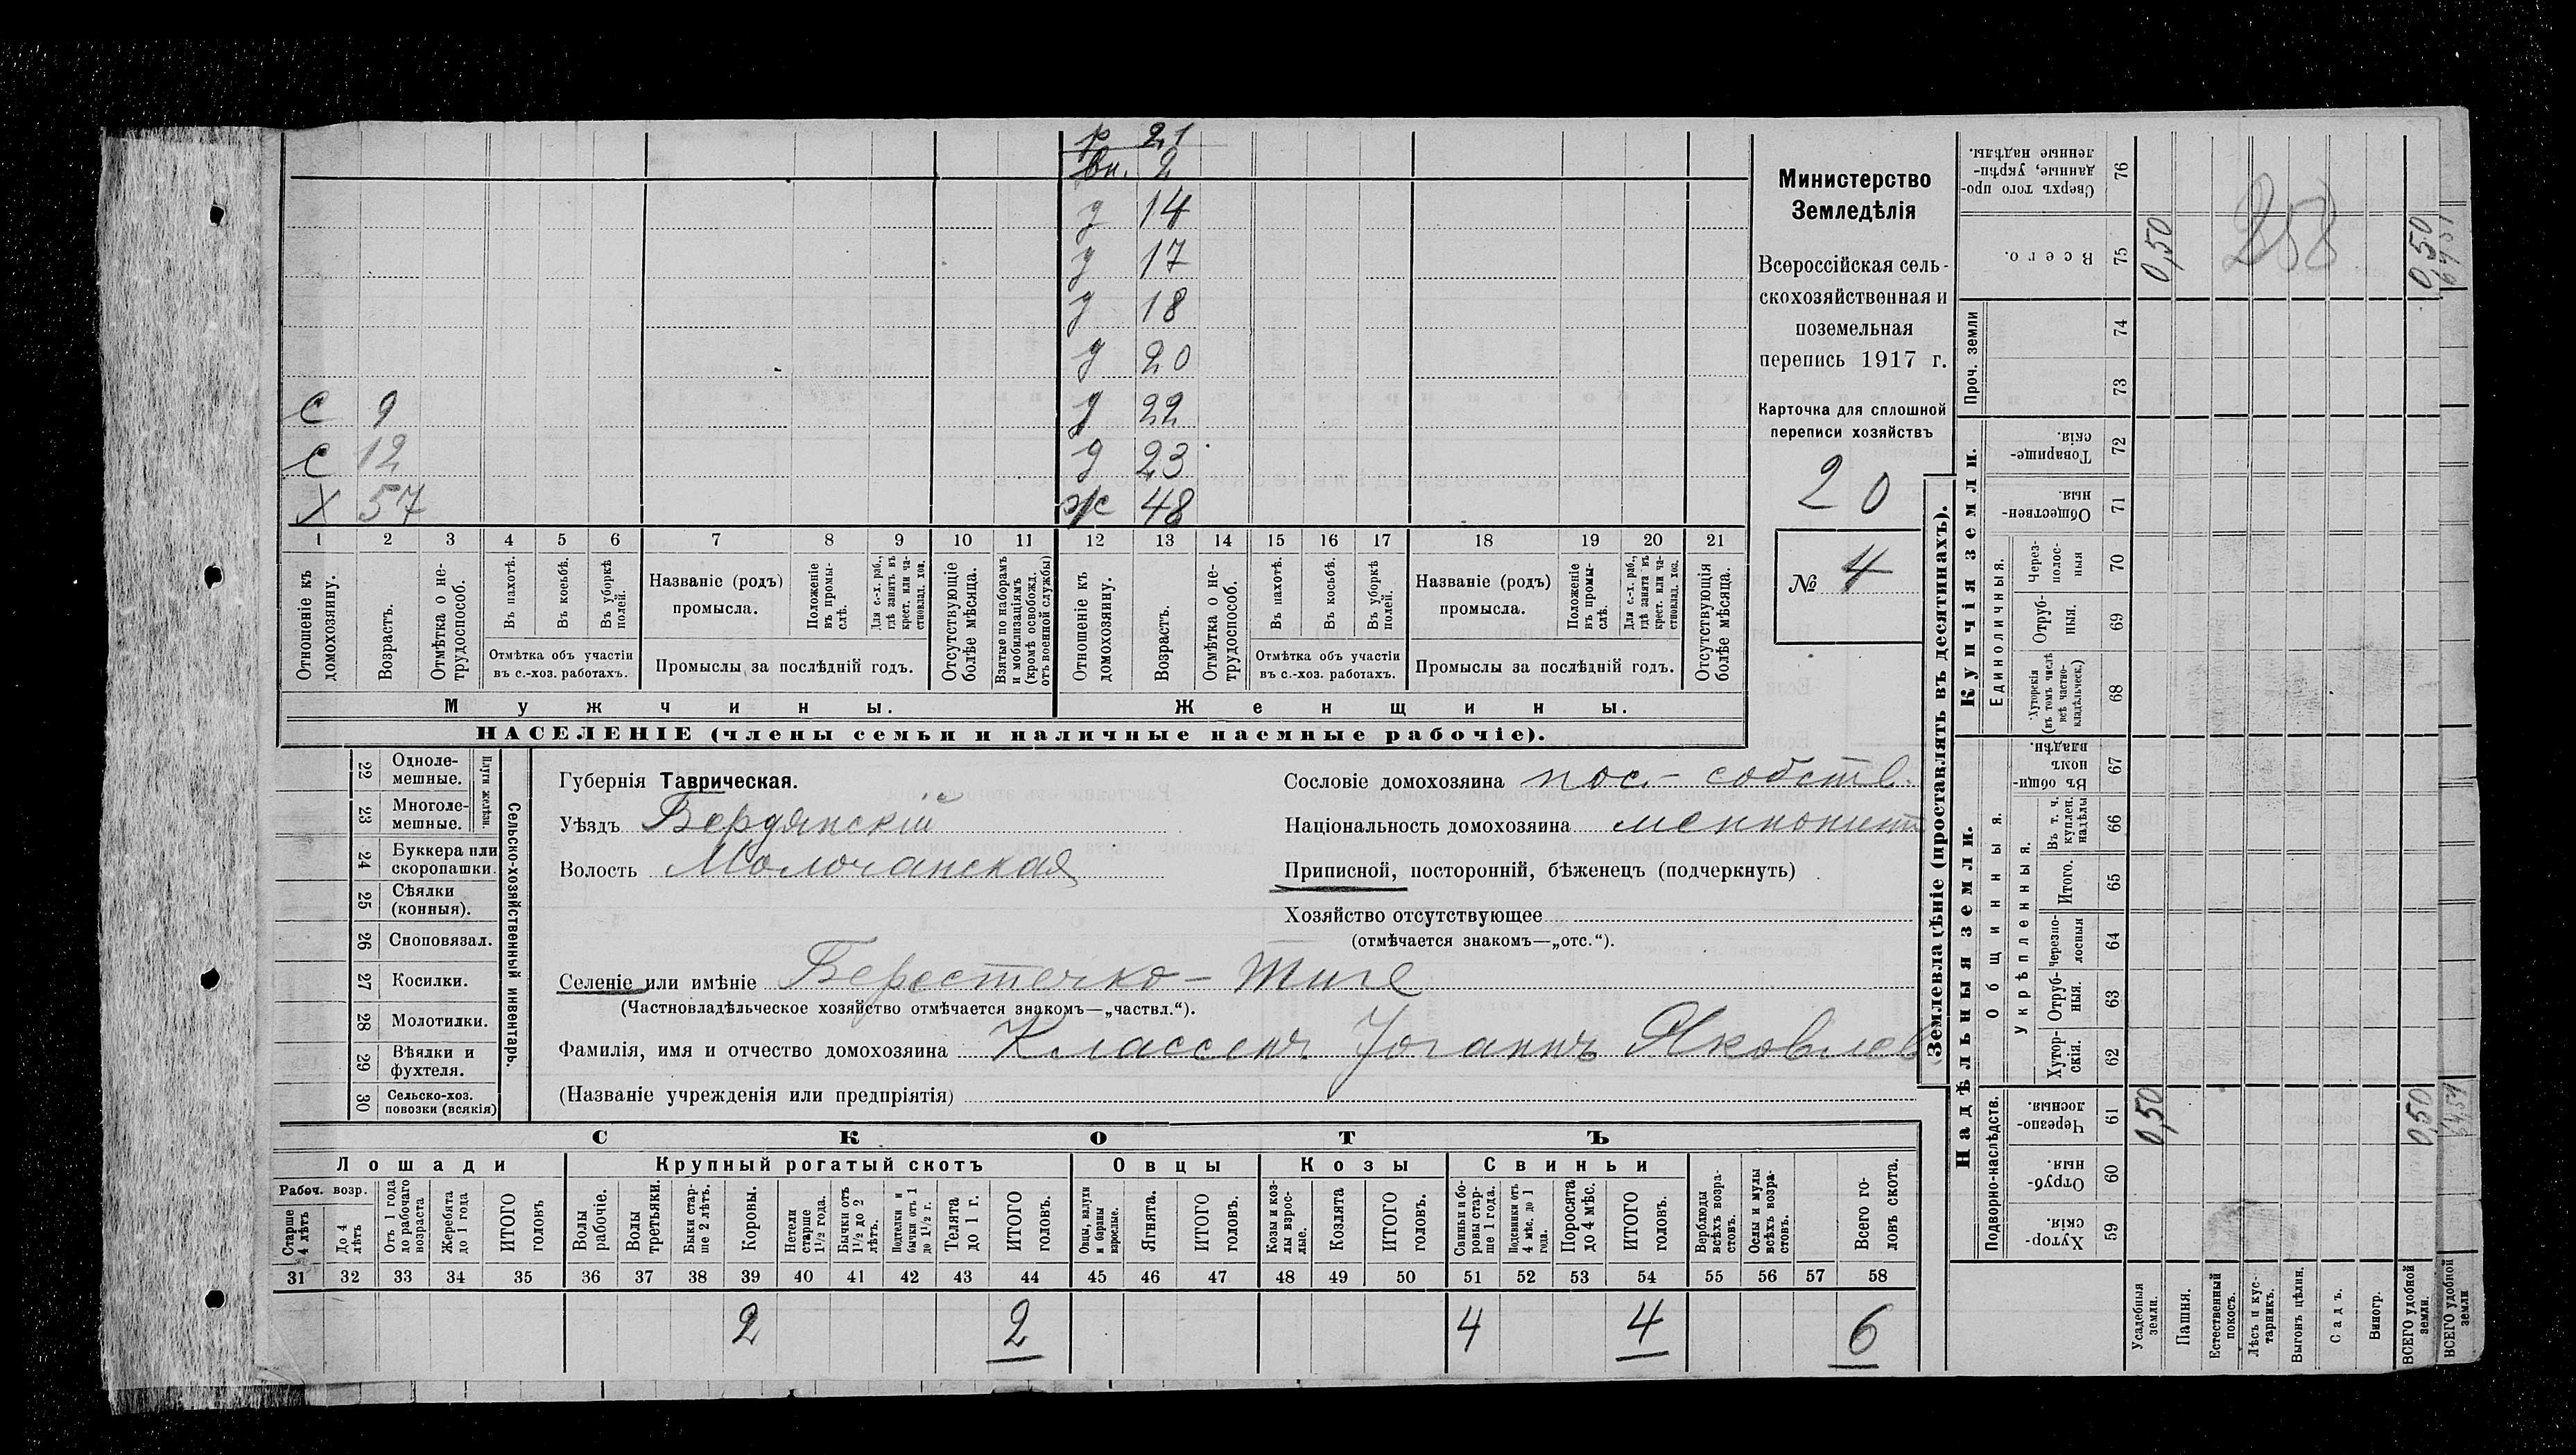 р 21
вн. 2
д 14
д 17
д 18
д 20
с 9 д 22
с 12 д 23
х 57 ж 48
1 2 3 4 5 6 7 8 9 10 11 12 13 14 15 16 17 18 19 20 21
Отношеніе къ домохозяину.
Возрастъ.
Отмѣтка о не-трудоспособ.
Въ пахотѣ.
Въ косьбѣ.
Въ уборкѣ полей.
Отмѣтка объ участіи
въ с.-хоз. работахъ.
Названіе (родъ)
промысла.
Положеніе въ промы-слѣ.
Для с.-х. раб., гдѣ занятъ въ крест. или ча-стновлад. хоз.
Промыслы за послѣдній годъ.
Отсутствующіе болѣе мѣсяца.
Взятые по наборамъ и мобилизаціямъ (кромѣ освобожд. отъ военной службы)
Отношеніе къ домохозяину.
Возрастъ.
Отмѣтка о не-трудоспособ.
Въ пахотѣ.
Въ косьбѣ.
Въ уборкѣ полей.
Отмѣтка объ участіи
въ с.-хоз. работахъ.
Названіе (родъ)
промысла.
Положеніе въ промы-слѣ.
Для с.-х. раб., гдѣ занята въ крест. или ча-стновлад. хоз.
Промыслы за послѣдній годъ.
Отсутствующія болѣе мѣсяца.
Мужчины. Женщины.
НАСЕЛЕНІЕ (члены семьи и наличные наемные рабочіе).
Министерство
Земледѣлія
Всероссійская сель-
скохозяйственная и
поземельная
перепись 1917 г.
Карточка для сплошной
переписи хозяйствъ
20
№ 4
Сельско-хозяйственный инвентарь.
Плуги желѣзн.
22 Одноле-мешные.
23 Многоле-мешные.
24 Буккера или скоропашки.
25 Сѣялки (конныя).
26 Сноповязал.
27 Косилки.
28 Молотилки.
29 Вѣялки и фухтеля.
30 Сельско-хоз. повозки (всякія)
Губернія Таврическая.
Уѣздъ Бердянскій
Волость Молочанская
Сословіе домохозяина пос.- собств.
Національность домохозяина меннонит
Приписной, посторонній, бѣженецъ (подчеркнуть)
Хозяйство отсутствующее
(отмѣчается знакомъ—„отс.“).
Селеніе или имѣніе Берестечко - Тиге
(Частновладѣльческое хозяйство отмѣчается знакомъ—„частвл.“).
Фамилія, имя и отчество домохозяина Классенъ Іоганнъ Яковлев
(Названіе учрежденія или предпріятія)
СКОТЪ
Лошади Крупный рогатый скотъ Овцы Козы Свиньи
Рабоч. возр.
Старше 4 лѣтъ
До 4 лѣтъ
Отъ 1 года до рабочаго возраста
Жеребята до 1 года
ИТОГО головъ
Волы рабочіе.
Волы третьяки.
Быки стар-ше 2 лѣтъ.
Коровы.
Нетели старше 1½ года.
Бычки отъ 1½ до 2 лѣтъ.
Подтелки и бычки отъ 1 до 1½ г.
Телята до 1 г.
ИТОГО головъ.
Овцы, валухи и бараны взрослые.
Ягнята.
ИТОГО головъ.
Козы и коз-лы взрос-лые.
Козлята
ИТОГО головъ.
Свиньи и бо-ровы стар-ше 1 года.
Подсвинки отъ 4 мѣс. до 1 года.
Поросята до 4 мѣс.
ИТОГО головъ.
Верблюды всѣхъ возра-стовъ.
Ослы и мулы всѣхъ возра-стовъ.
Всего го-ловъ скота.
31 32 33 34 35 36 37 38 39 40 41 42 43 44 45 46 47 48 49 50 51 52 53 54 55 56 57 58
2 2 4 4 6
Землевладѣніе (проставлять въ десятинахъ).
Купчія земли.
Проч. земли
Единоличныя.
Надѣльныя земли.
Общинныя.
Укрѣпленныя.
Подворно-наслѣдств.
Сверхъ того про-данные, укрѣп-ленные надѣлы. 76
Всего. 75 0,50 258 0,50
74
73
Товарище-скія. 72
Обществен-ныя. 71
Через-полос-ныя 70
Отруб-ныя. 69
Хуторскія (въ томъ числѣ всѣ частно-владѣльческ.) 68
Въ общин-номъ владѣн. 67
Въ т. ч. куплен. надѣлы 66
Итого. 65
Черезпо-лосныя 64
Отруб-ныя. 63
Хутор-скія. 62
Черезпо-лосныя. 61 0,50 0,50
Отруб-ныя. 60
Хутор-скія. 59
Усадебныя земли.
Пашня.
Естественный покосъ.
Лѣсъ и кус-тарникъ.
Выгонъ цѣлин.
Садъ.
Виногр.
ВСЕГО удобной земли.
ВСЕГО удобной земли